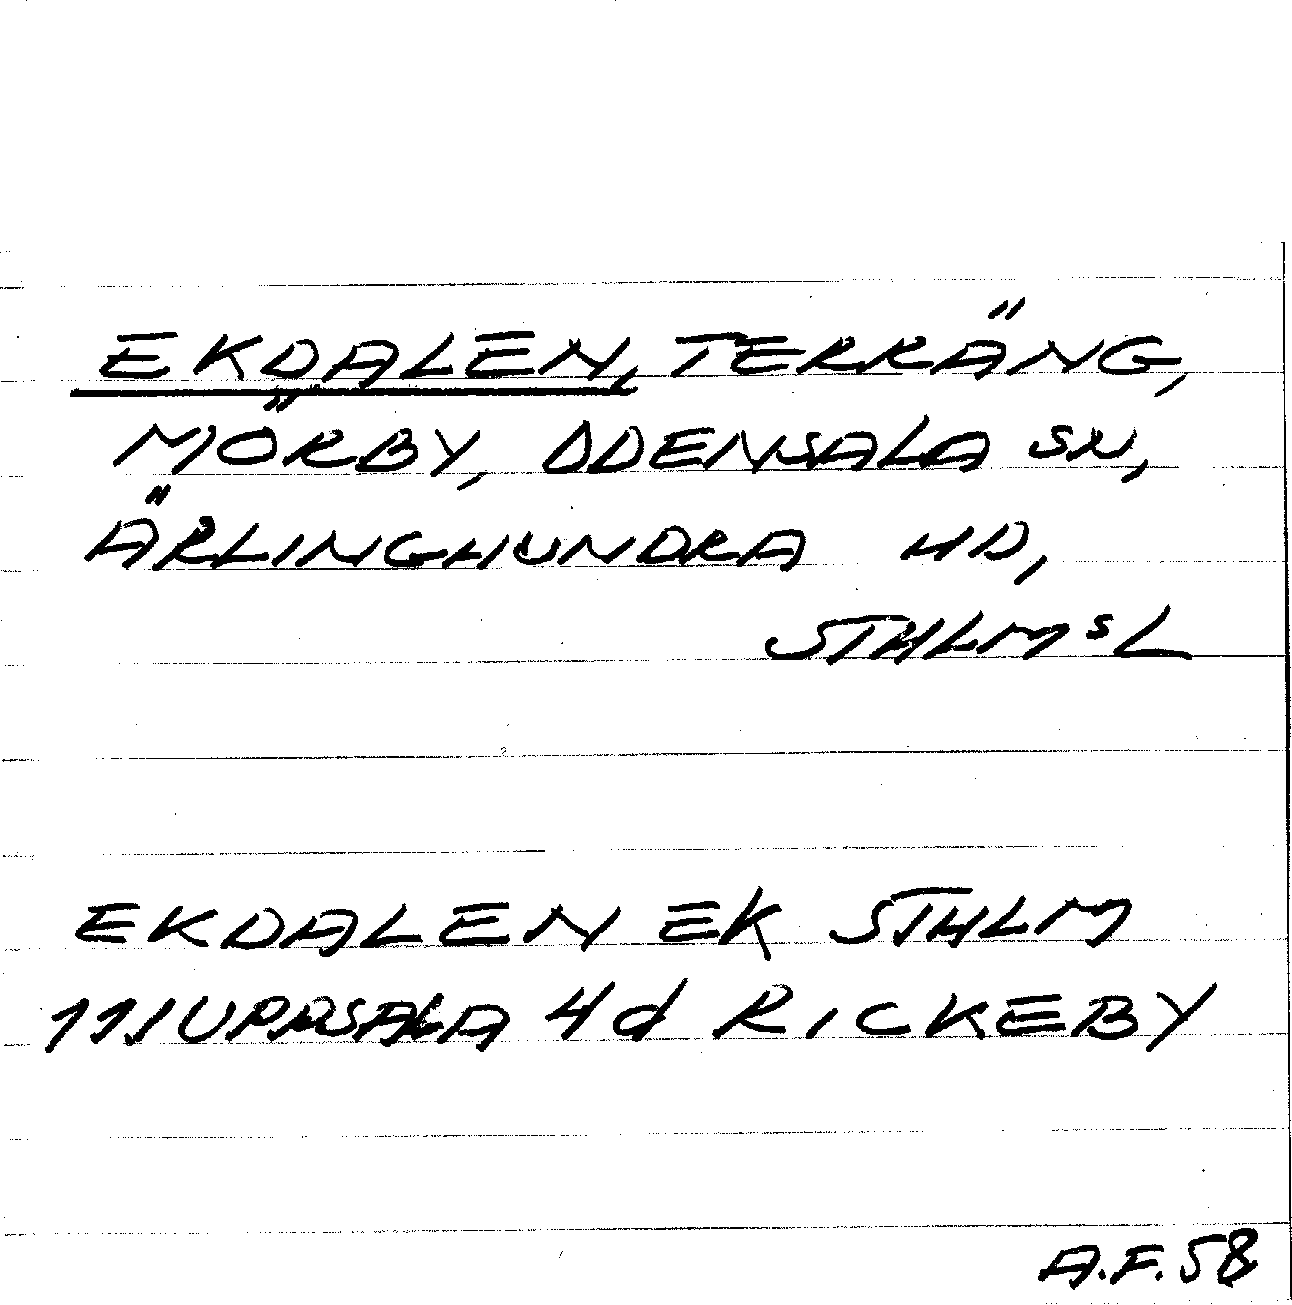 EKDALEN, TERRÄNG,
MÖRBY, ODENSALA SN,
ÄRLINGHUNDRA HD,
STHLMS L
EKDALEN EK STHLM
11I UPPSALA 4d RICKEBY
A.F. 58